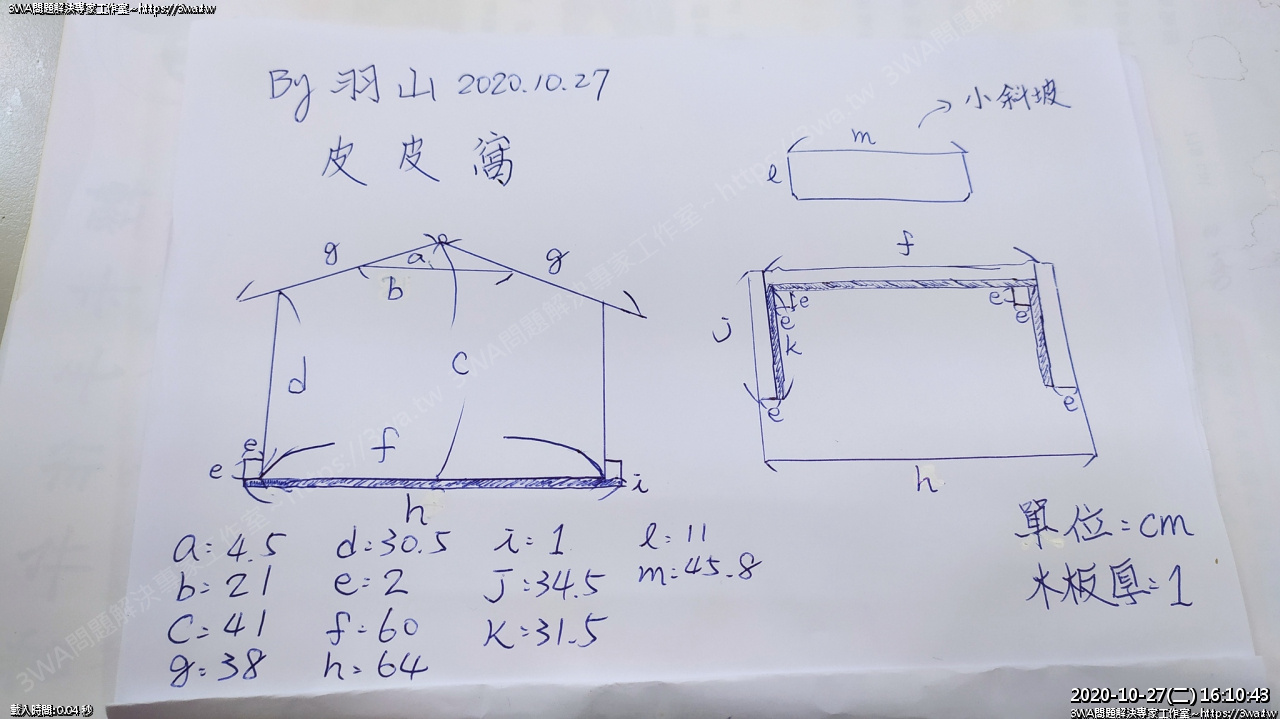 3WA問題解決專家工作室~https://3wa.tw
3WA問題解決專家工作室~https://3wa.tw
By 羽山 2020.10.27
皮皮窩
小斜坡
m
l
g
a
g
b
f
e
e
e
e
j
k
d
c
e
e
e
f
e
i
h
h
a=4.5 d=30.5 i=1 l=11
b=21 e=2 j=34.5 m=45.8
c=41 f=60 k=31.5
g=38 h=64
單位=cm
木板厚=1
載入時間:0.04 秒
2020-10-27(二) 16:10:43
3WA問題解決專家工作室~https://3wa.tw